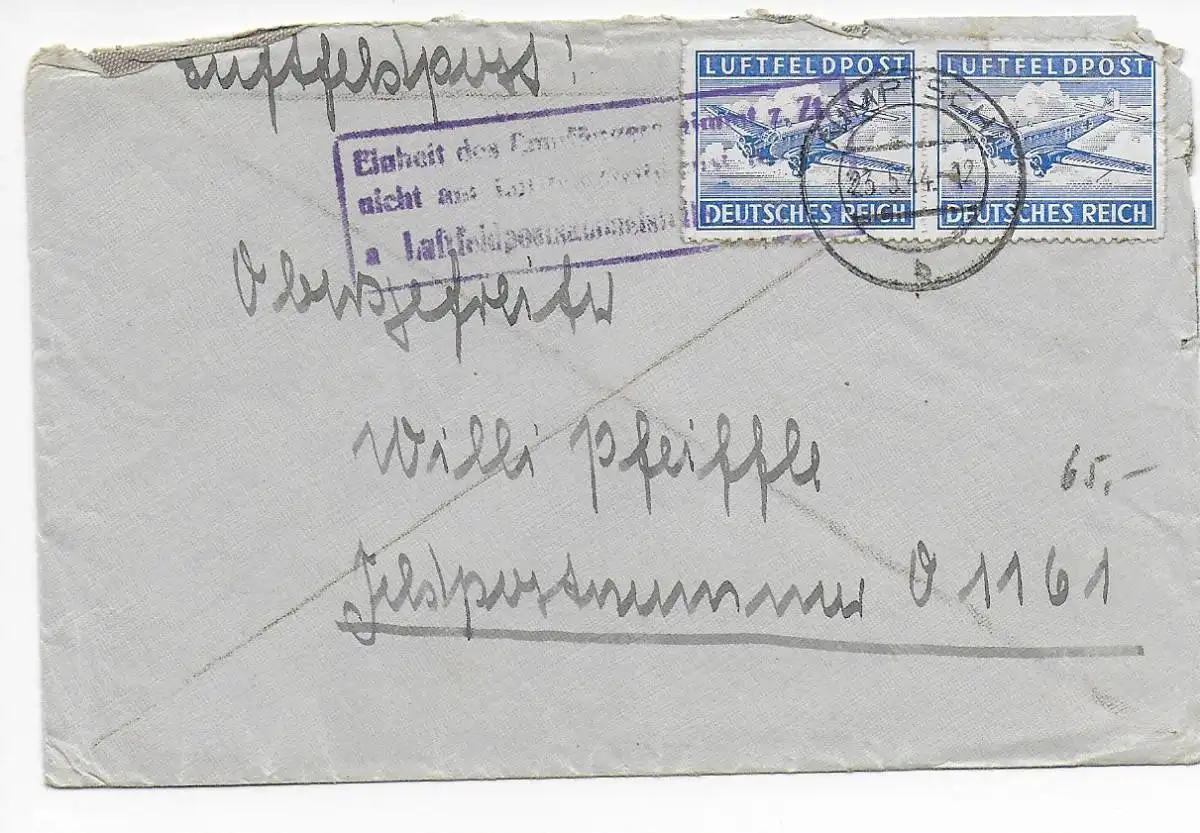 Luftfeldpost!
LUFTFELDPOST
DEUTSCHES REICH
LUFTFELDPOST
DEUTSCHES REICH
23.5.44.-12
b
Einheit des Empfängers nimmt z. Zt.
nicht am
a Luftfeldpost
Obergefreiter
Willi Pfeiffle
65,-
Feldpostnummer 01161